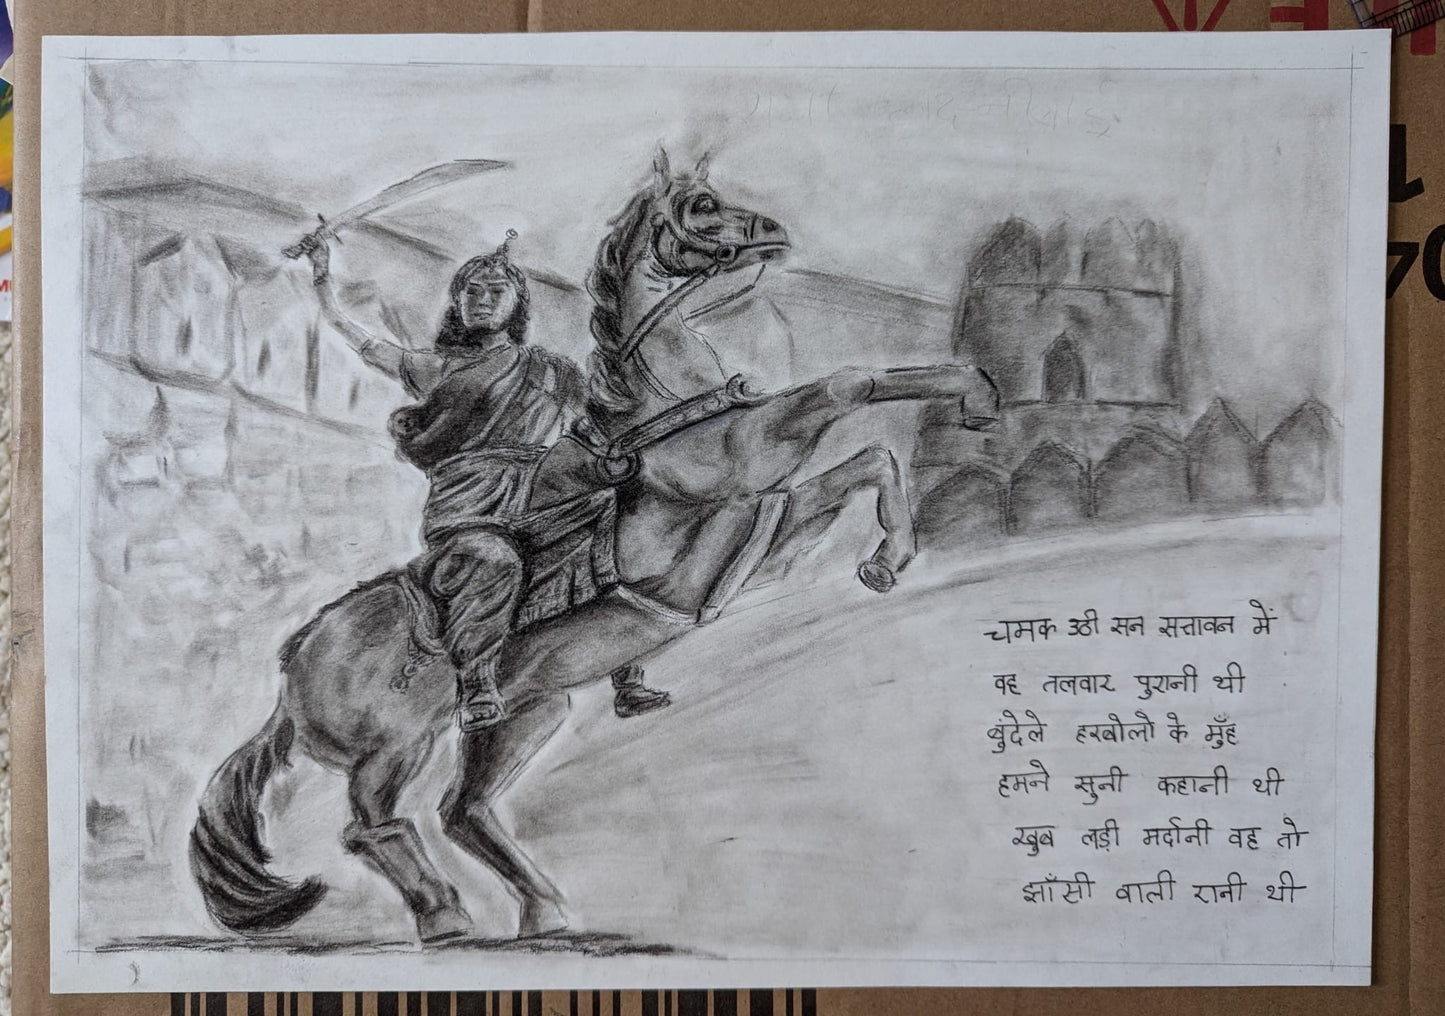 चमक उठी सन सत्तावन में
वह तलवार पुरानी थी
बुंदेले हरबोलो के मुँह
हमने सुनी कहानी थी
खुब लड़ी मर्दानी वह तो
झाँसी वाली रानी थी